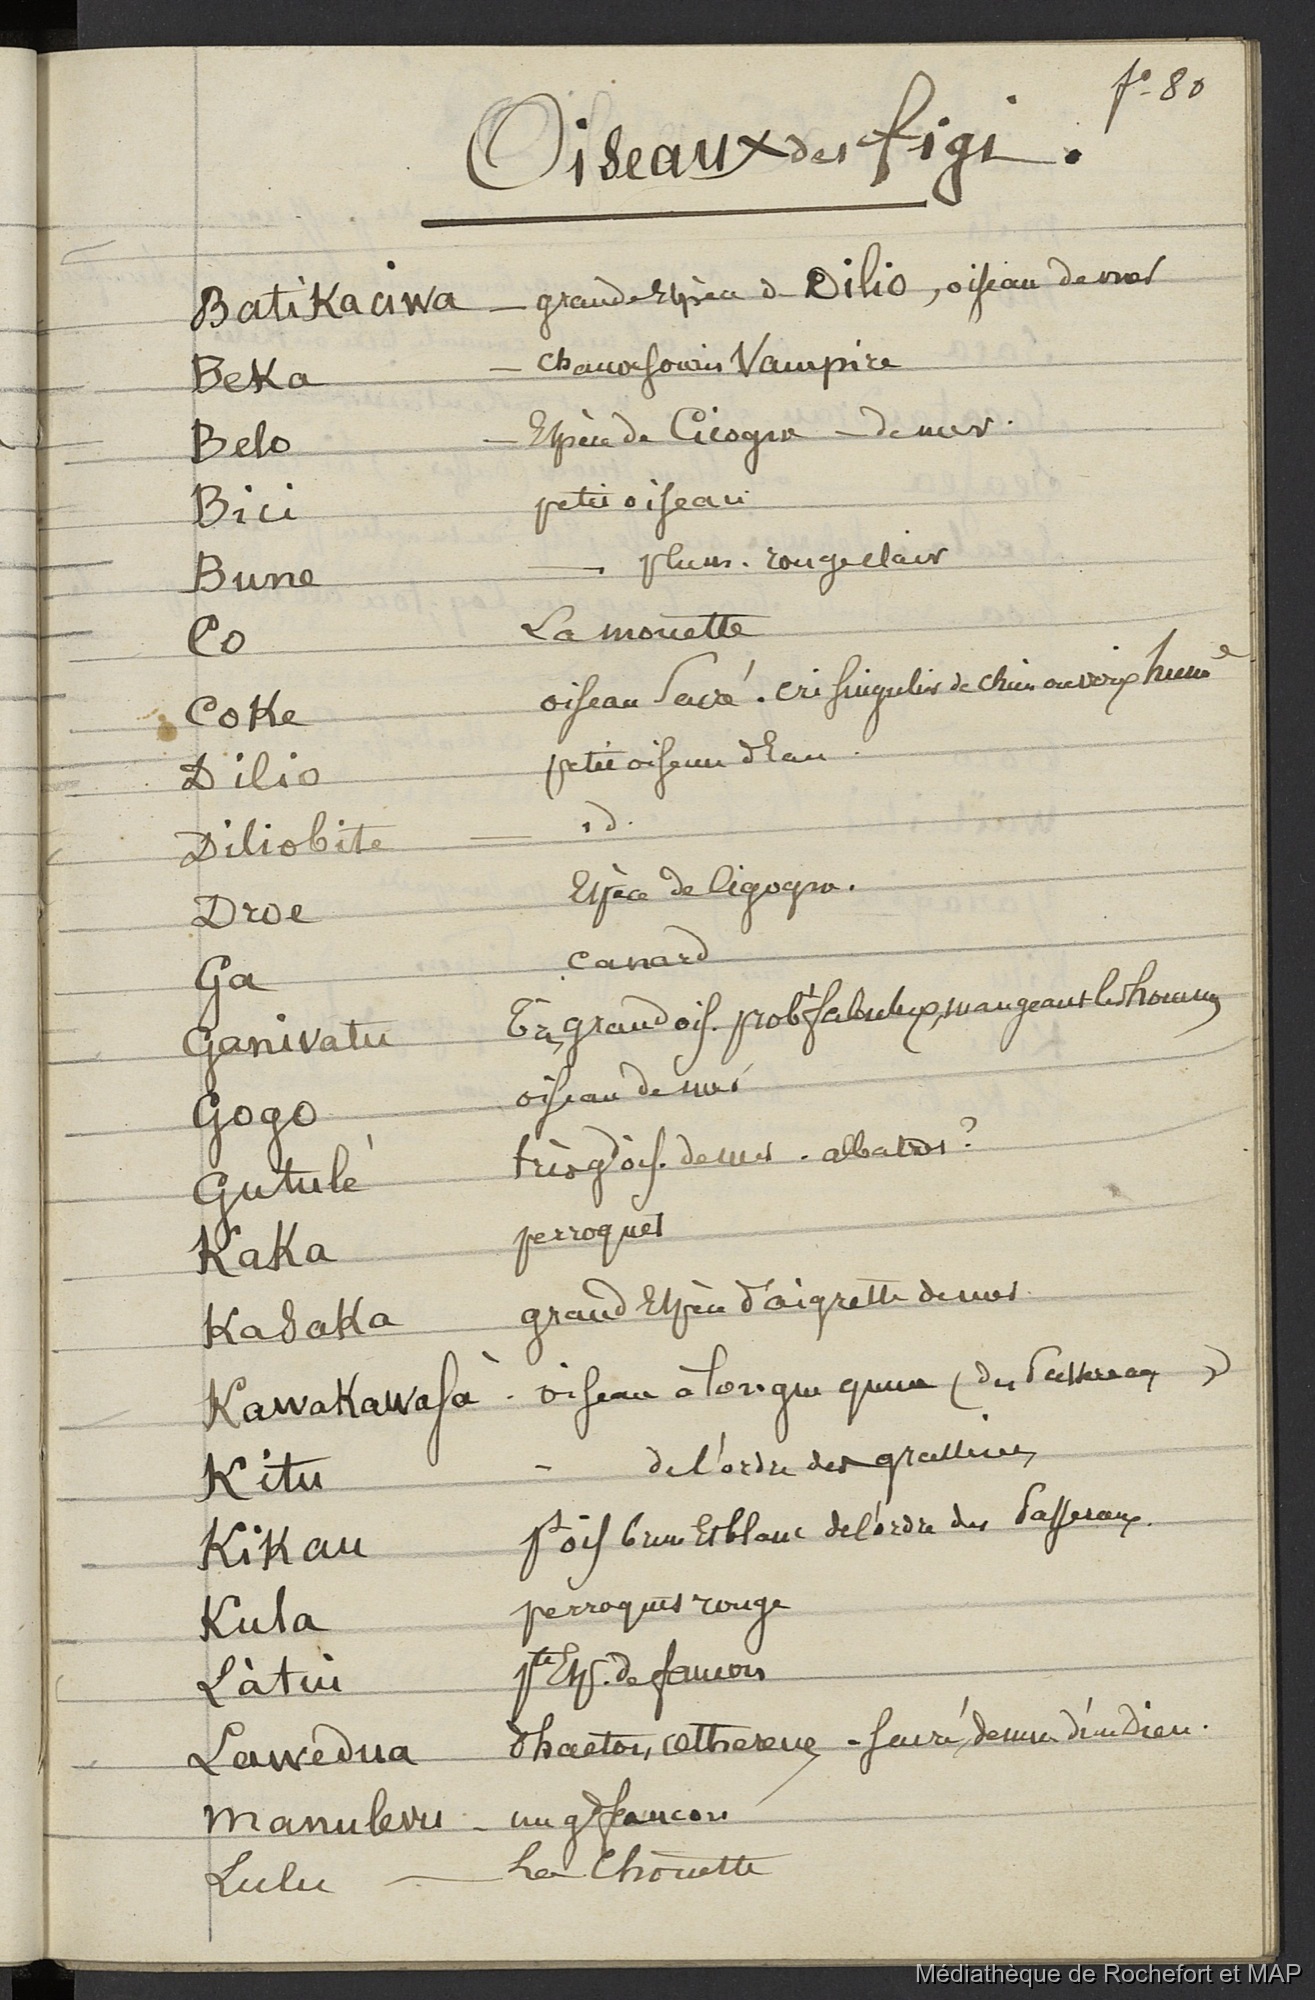 fo. 80
Oiseaux des figi.
Batikaciwa — grande Espèce de Dilio, oiseau de mer
Beka — chauve souris Vampire
Belo — Espèce de Cicogne — de mer.
Bici petit oiseau
Bune — plum. rouge clair
Co La mouette
Coke oiseau sacré. cri singulier de chien ou voix hume
Dilio petit oiseau d'Eau.
Diliobite — id.
Droe Espèce de Cigogne.
Ga canard
Ganivatu Très grand ois. probt fabuleux, mangeant les hommes
Gogo oiseau de mer
Gutulé très gd ois. de mer. albatros?
Kaka perroquet
Kasaka grand Espèce d'aigrette de mer.
Kawakawasà. oiseau à longue queue (des Passereaux)
Kitu - de l'ordre des grallines
Kikau pt ois brun Et blanc de l'ordre des Passeraux.
Kula perroquet rouge
Làtui pte Esp. de faucon
Lawedua Phaeton, œthereus - sacré, demeure d'un Dieu.
Manulevu - un gd faucon
Lulu — La Chouette
Médiathèque de Rochefort et MAP